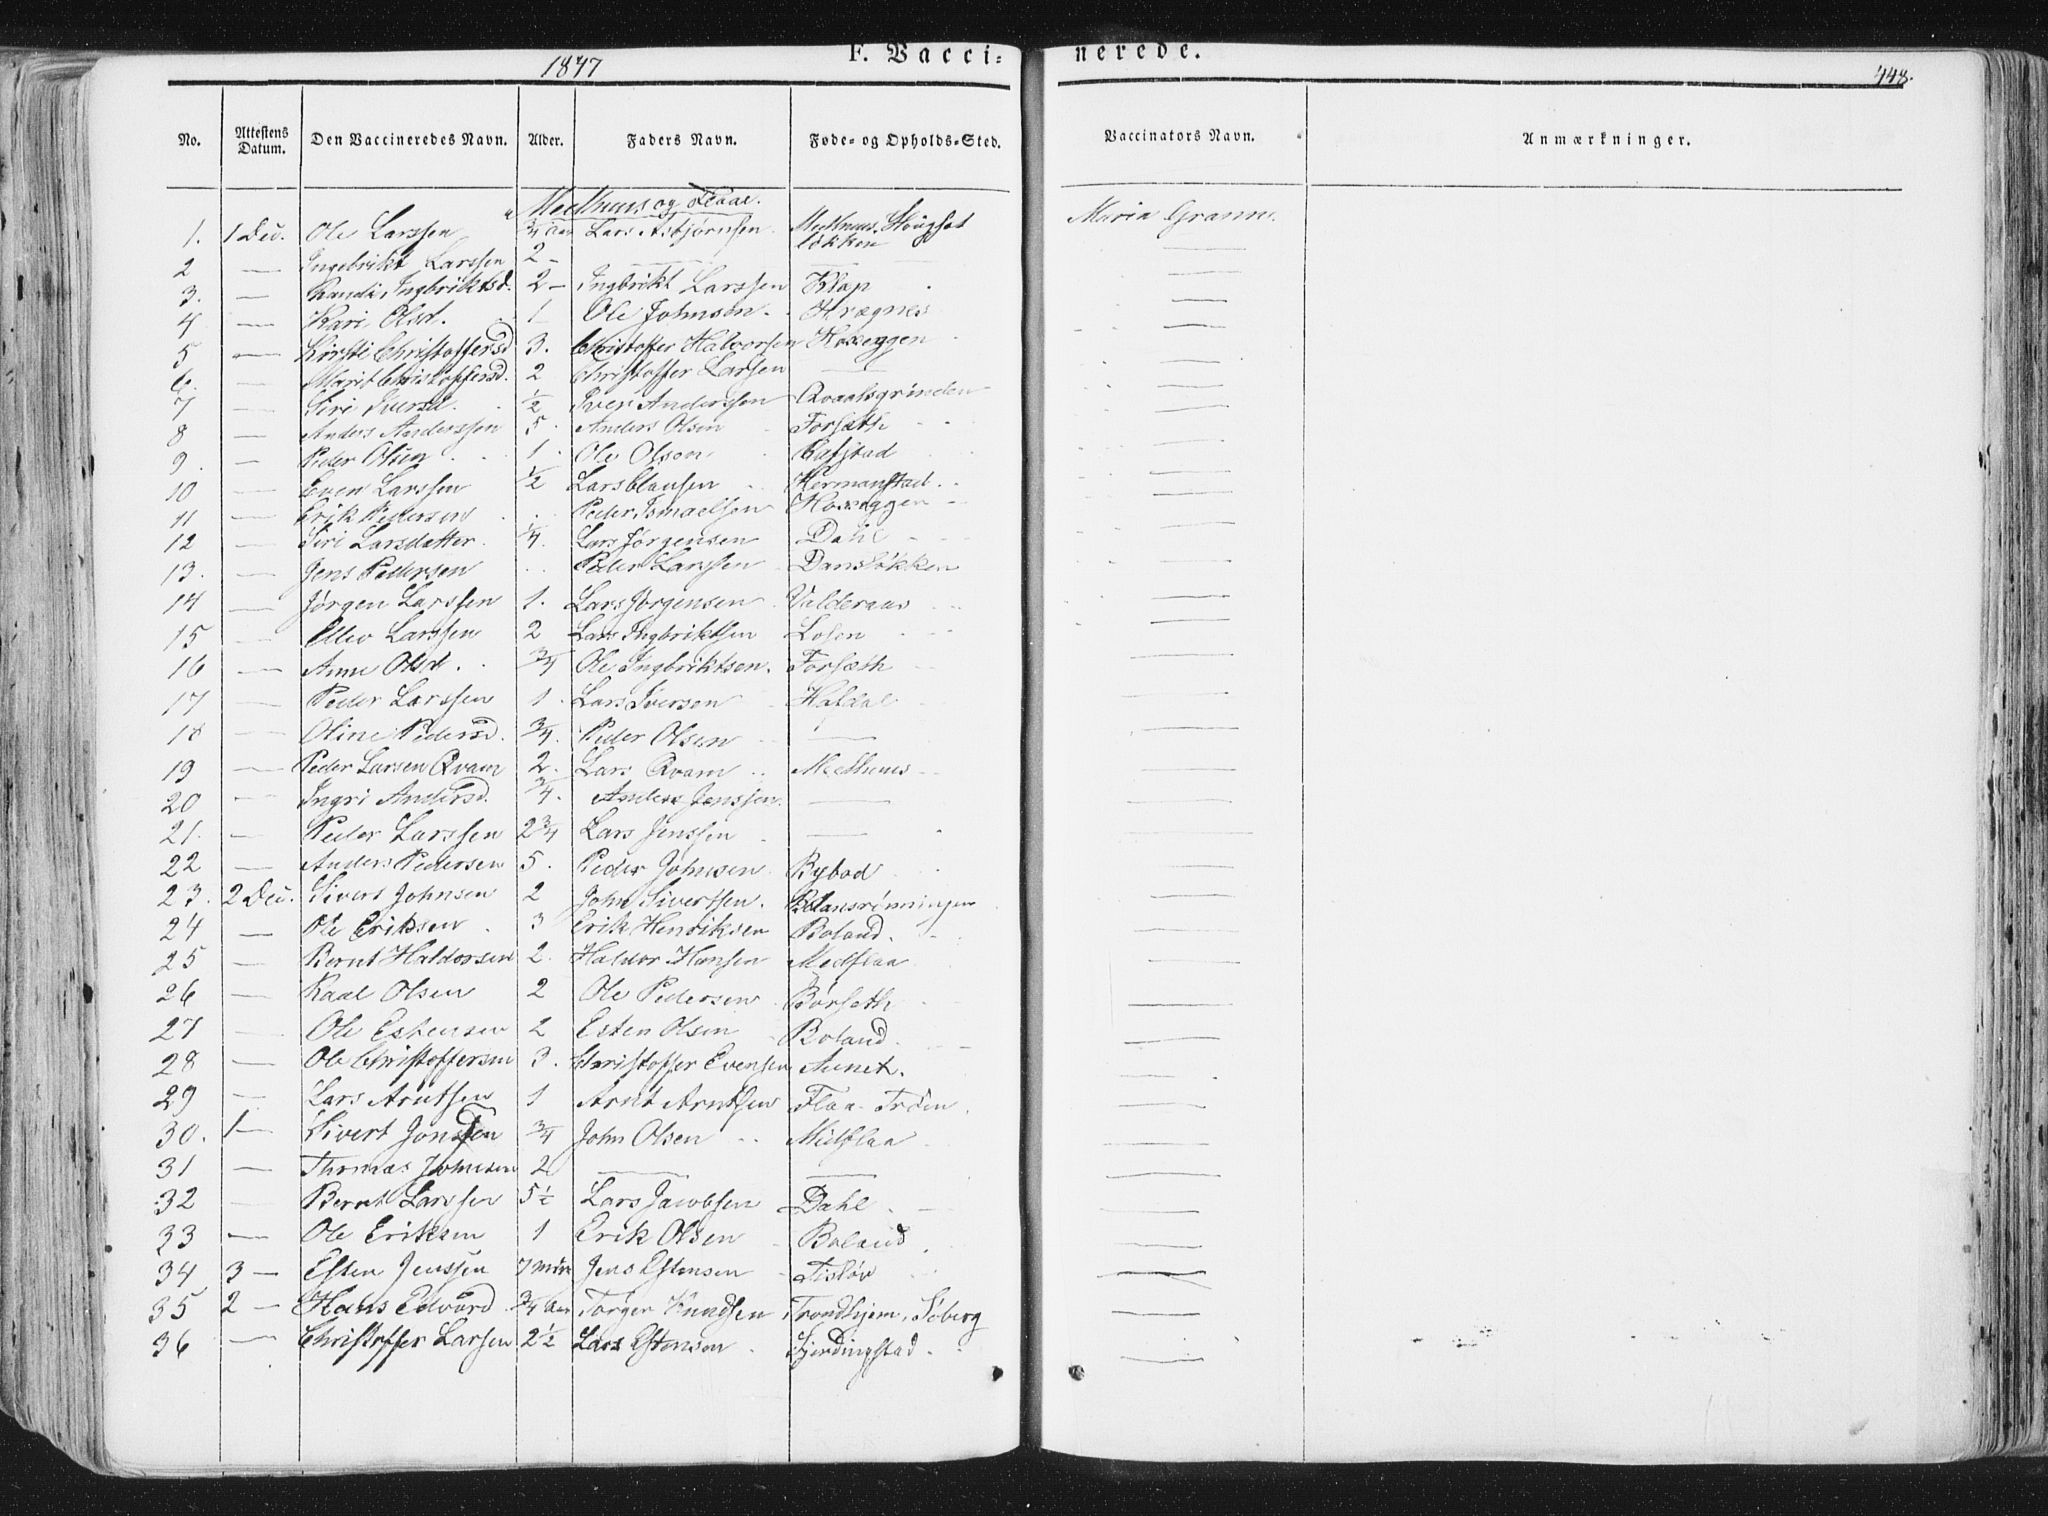 1847 F. Vacci- nerede. 448.
No. Attestens Datum. Den Vaccineredes Navn. Alder. Faders Navn. Føde- og Opholds-Sted. Vaccinators Navn. Anmærkninger.
Meelhuus og Flaae.
1. 1 Dec. Ole Larssen 3/4 Aar Lars Asbjørnssen Meelhuus Maria Grann
løkken
2 — Ingebrikt Larssen 2 - — — —
3. — Randi Ingbriktsd. 2 - Ingbrikt Larssen Klap —
4 — Kari Olsd. 1 Ole Johnsen Hrægnes —
5 — Kirsti Christoffersd 3. Christoffer Halvorsen Hoxeggen —
6. — Marit Christoffersd. 2 Christoffer Larsen — —
7 — Siri Iversd. 1/2 Iver Anderssen Qvaalsgrinden —
8 — Anders Anderssen 5 Anders Olsen Forsæth —
9. — Peder Olsen 1 Ole Olsen —
10 — Even Larssen 1/2 Lars Clausen Hermanstad —
11 — Erik Pedersen Peder Ismaelsen Hoxeggen —
12 — Siri Larsdatter 1/4. Lars Jørgensen Dahl —
13. — Jens Pedersen Peder Larssen Dansløkken —
14 — Jørgen Larssen 1. Lars Jørgensen Valderaas —
15 — Ellev Larssen 2 Lars Ingbriktsen Losen —
16 — Anne Olsd. 3/4 Ole Ingbriktsen. Forsæth —
17 — Peder Larssen 1 Lars Iversen Haldal —
18 — Oline Pedersd. 3/4. Peder Olsen — —
19 — Peder Larsen Qvam 2. Lars Qvam Meelhuus —
20 — Ingri Andersd. 3/4. Anders Jenssen. — —
21. — Peder Larssen 2 3/4 Lars Jenssen — —
22 — Anders Pedersen 5. Peder Johnsen Rybod —
23. 2 Dec. Sivert Johnsen 2 John Sivertsen. Bolansrønningen —
24 — Ole Eriksen 3 Erik Henriksen Boland. —
25 — Bernt Haldorsen 2. Haldor Hansen Medflaa —
26 — Paal Olsen 2 Ole Pedersen Børseth —
27 — Ole Estensen 2 Esten Olsen Boland —
28 — Ole Christoffersen 3. Christoffer Evensen Aunet. —
29 — Lars Arntsen 1 Arnt Arntsen Flaa-Trøen. —
30. 1 — Sivert Jonssen 3/4 John Olsen Midflaa —
31 — Thomas Johnsen 2 — — —
32 — Bernt Larssen 5 1/2 Lars Jacobsen Dahl —
33 — Ole Eriksen 1 Erik Olsen Boland —
34 3 — Esten Jenssen 7 Jens Estensen Tisløv —
35 2 — Hans Edvard 3/4 Aar Torger Knudsen Trondhjem, Søberg —
36 — Christoffer Larsen 2 1/2 Lars Estensen Gjerdingstad —